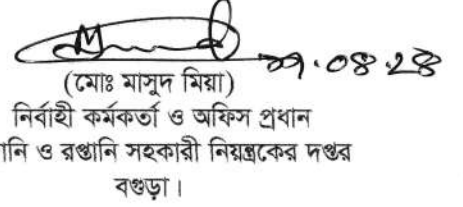 (মোঃ মাসুদ মিয়া)
নির্বাহী কর্মকর্তা ও অফিস প্রধান
ও রপ্তানি সহকারী নিয়ন্ত্রকের দপ্তর
বগুড়া।